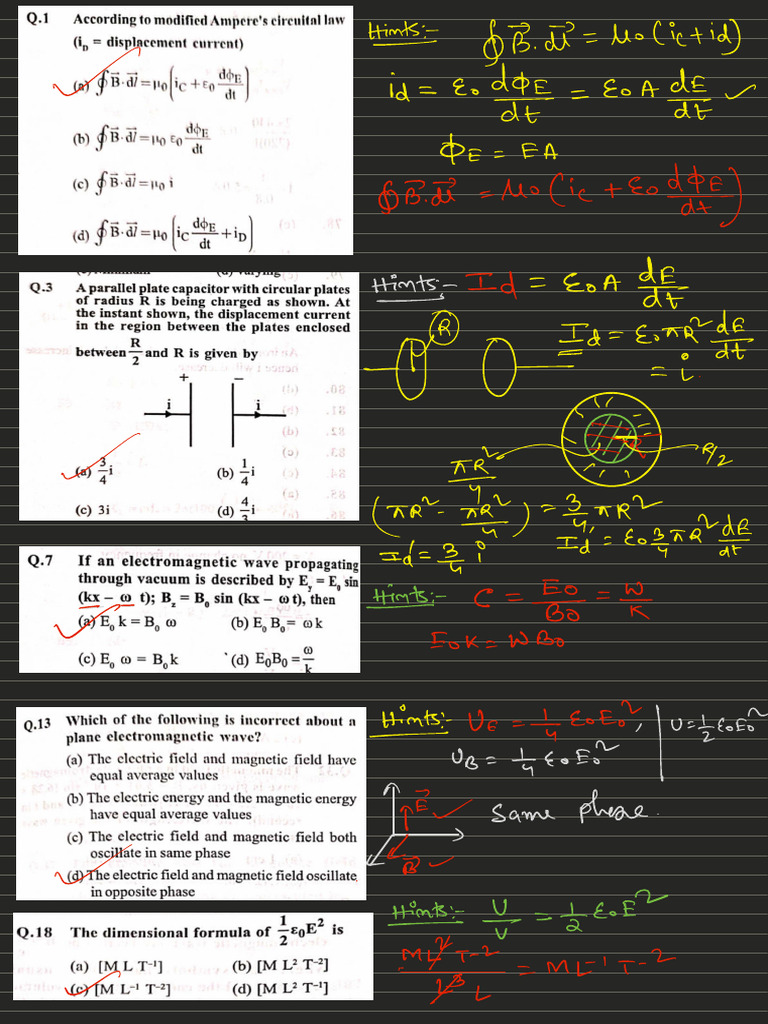 Q.1 According to modified Ampere's circuital law
(i_D = displacement current)
(a) ∮B⃗·dl⃗ = μ₀(i_C + ε₀ dϕ_E/dt)
(b) ∮B⃗·dl⃗ = μ₀ ε₀ dϕ_E/dt
(c) ∮B⃗·dl⃗ = μ₀ i
(d) ∮B⃗·dl⃗ = μ₀(i_C dϕ_E/dt + i_D)
Hints:- ∮B⃗.dl⃗ = μ₀(ic + id)
id = ε₀ dϕ_E/dt = ε₀ A dE/dt ✓
ϕ_E = EA
∮B⃗.dl⃗ = μ₀(ic + ε₀ dϕ_E/dt)
Q.3 A parallel plate capacitor with circular plates
of radius R is being charged as shown. At
the instant shown, the displacement current
in the region between the plates enclosed
between R/2 and R is given by
+ −
i i
(a) 3/4 i (b) 1/4 i
(c) 3i (d) 4/3 i
Hints:- Id = ε₀ A dE/dt
R
Id = ε₀ πR² dE/dt
= i
R/2
πR²/4
(πR² - πR²/4) = 3/4 πR²
Id = ε₀ 3/4 πR² dE/dt
Id' = 3/4 i
Q.7 If an electromagnetic wave propagating
through vacuum is described by E_y = E₀ sin
(kx – ω t); B_z = B₀ sin (kx – ω t), then
(a) E₀ k = B₀ ω (b) E₀ B₀ = ω k
(c) E₀ ω = B₀ k (d) E₀B₀ = ω/k
Hints:- C = E₀/B₀ = W/K
E₀K = WB₀
Q.13 Which of the following is incorrect about a
plane electromagnetic wave?
(a) The electric field and magnetic field have
equal average values
(b) The electric energy and the magnetic energy
have equal average values
(c) The electric field and magnetic field both
oscillate in same phase
(d) The electric field and magnetic field oscillate
in opposite phase
Hints:- U_E = 1/4 ε₀E₀², U = 1/2 ε₀E₀²
U_B = 1/4 ε₀E₀²
E⃗ ✓
B⃗ ✓
Same phase.
Q.18 The dimensional formula of 1/2 ε₀E² is
(a) [M L T⁻¹] (b) [M L² T⁻²]
(c) [M L⁻¹ T⁻²] (d) [M L² T⁻¹]
Hints:- U/V = 1/2 ε₀E²
ML² T⁻²/L³ L = ML⁻¹T⁻²